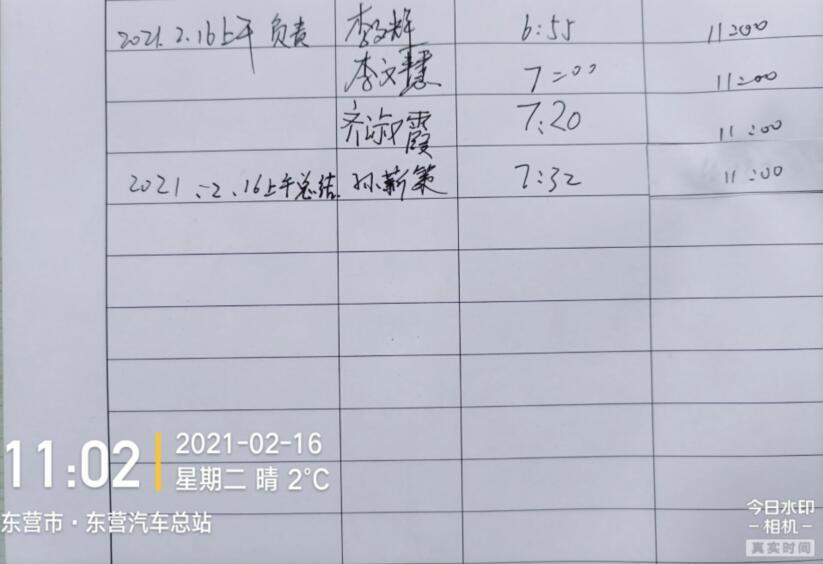 2021.2.16上午 负责 李文辉 6:55 11:00
李文慧 7:00 11:00
齐淑霞 7:20 11:00
2021.2.16上午总结 孙薪策 7:32 11:00
11:02
2021-02-16
星期二 晴 2℃
东营市·东营汽车总站
今日水印
-相机-
真实时间